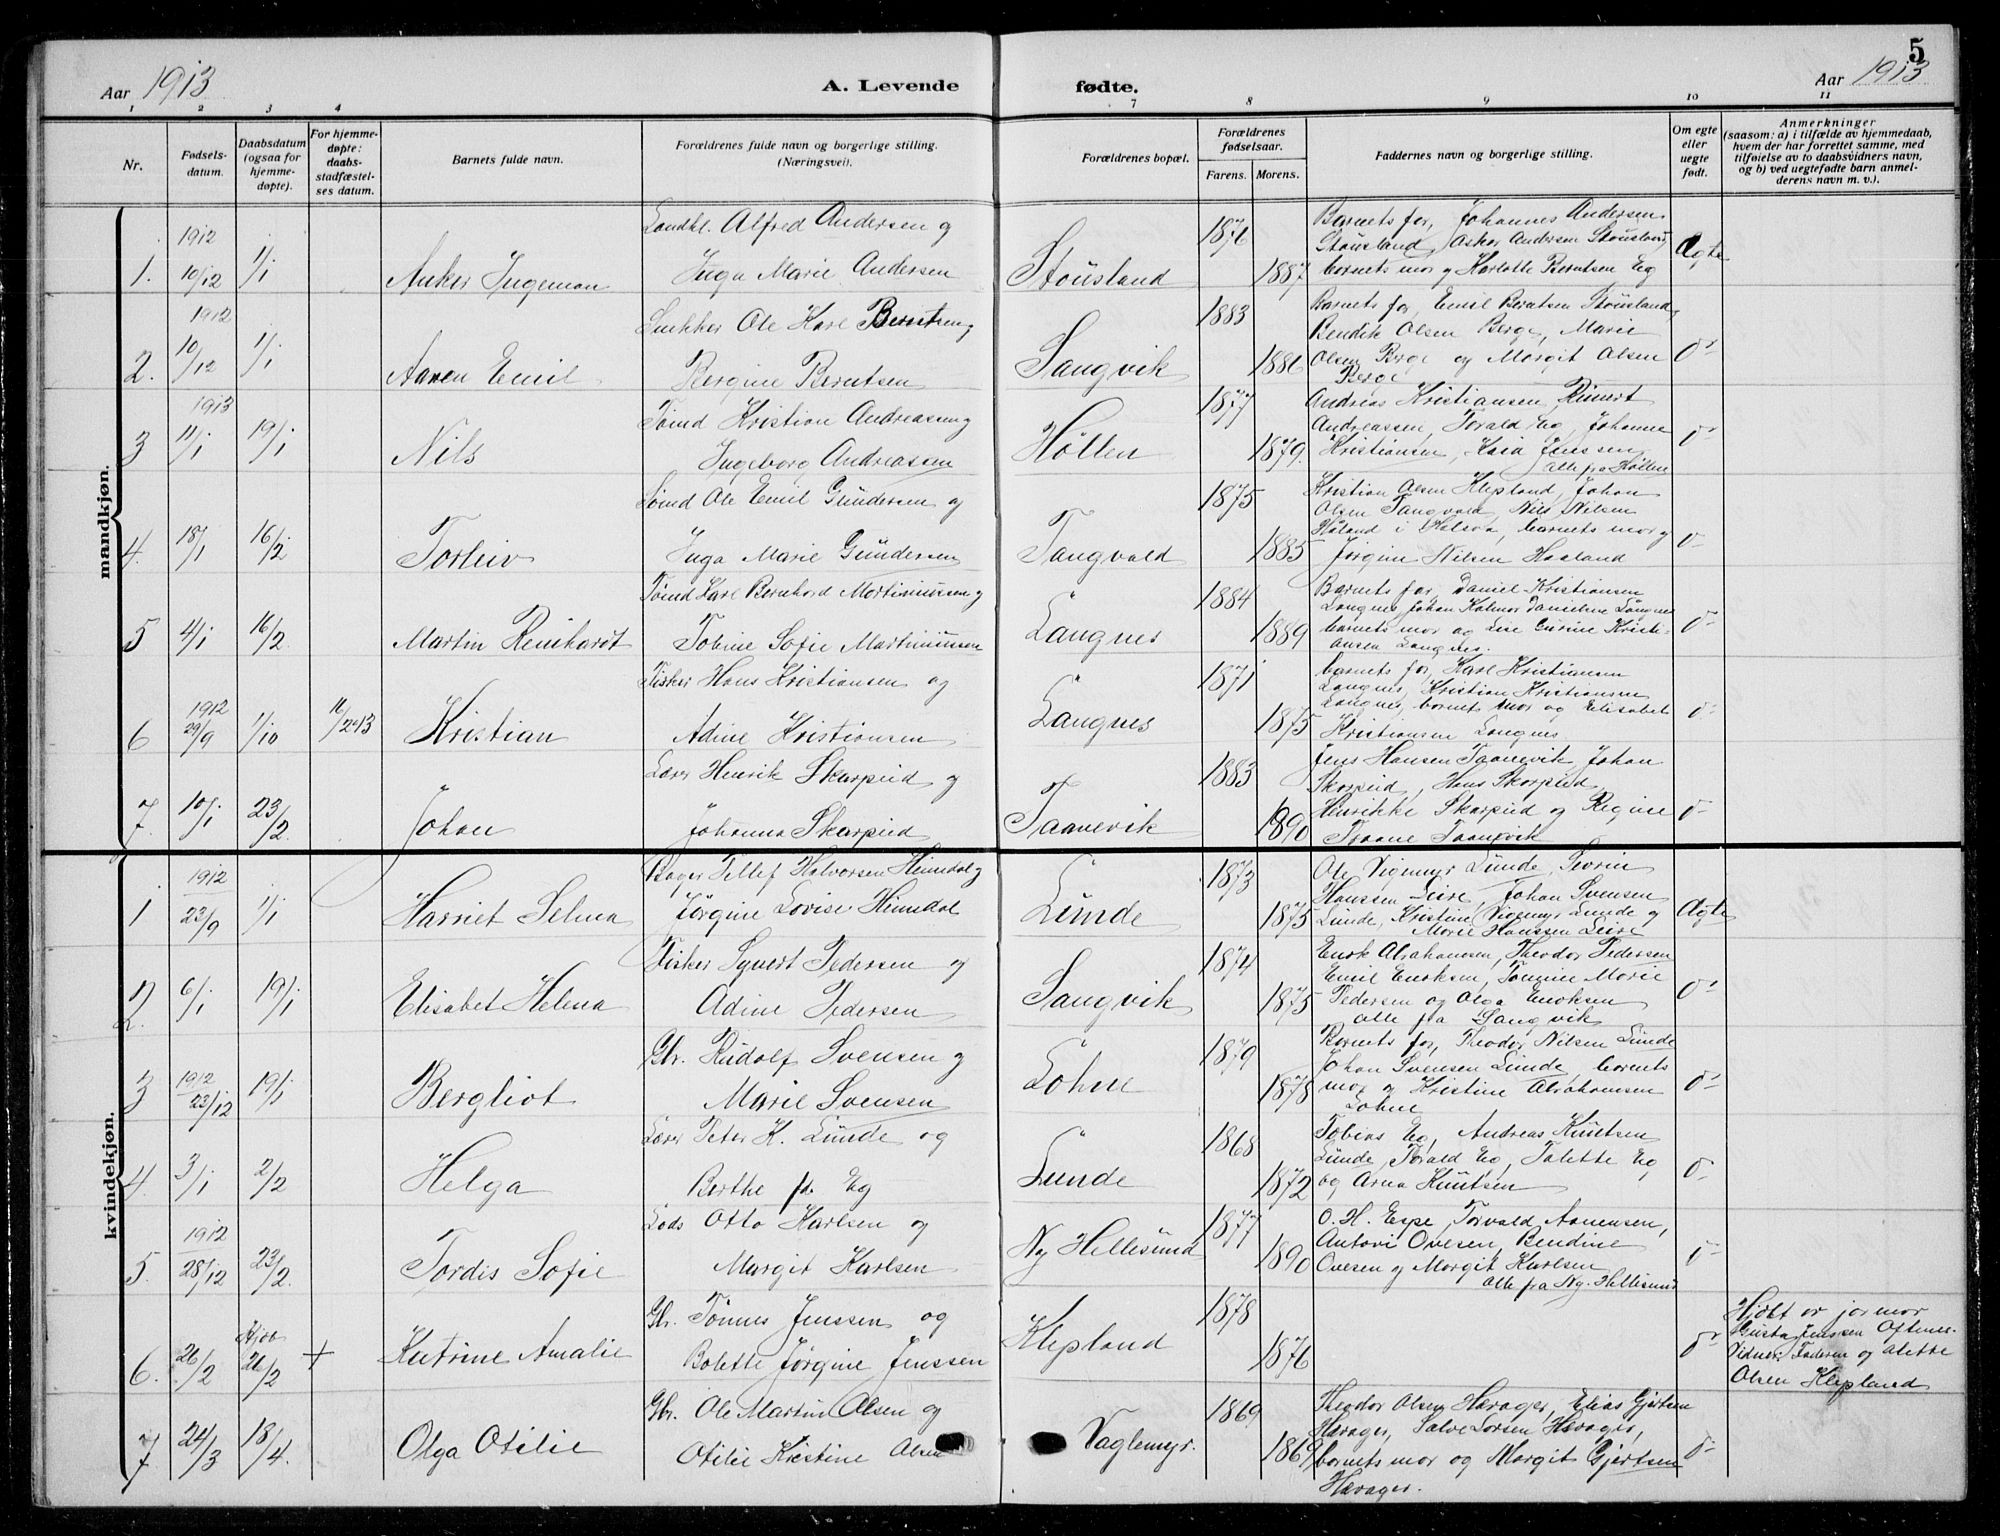 5
Aar 1913 A. Levende fødte. Aar 1913
1 2 3 4 7 8 9 10 11
Nr.
Fødsels-
datum.
Daabsdatum
(ogsaa for
hjemme-
døpte).
For hjemme-
døpte:
daabs-
stadfæstel-
ses datum.
Barnets fulde navn.
Forældrenes fulde navn og borgerlige stilling.
(Næringsvei).
Forældrenes bopæl.
Forældrenes
fødselsaar.
Farens. Morens.
Faddernes navn og borgerlige stilling.
Om egte
eller
uegte
født.
Anmerkninger
(saasom: a) i tilfælde av hjemmedaab,
hvem der har forrettet samme, med
tilføielse av to daabsvidners navn,
og b) ved uegtefødte barn anmel-
derens navn m. v.).
mandkjøn.
1. 1912 10/12 1/1 Anker Ingeman
Landhl. Alfred Andersen og
Inga Marie Andersen
Stousland 1876 1887
Barnets far, Johannes Andersen
Stousland, Asker Andersen Stousland,
barnets mor og Karlotte Berntsen Eg
Ægte
2. 1912 10/12 1/1 Aanen Emil
Snekker Ole Karl Berntsen og
Bergine Berntsen
Sangvik 1883 1886
Barnets far, Emil Berntsen Stousland,
Bendik Olsen Berge, Marie
Olsen Berge og Margit Olsen
Berge
do
3 1913 11/1 19/1 Nils
Tømd Kristian Andreassen og
Ingeborg Andreassen
Høllen 1877 1879.
Andreas Kristiansen, Rinert
Andreassen, Torald Eg, Johanne
Kristiansen, Kaia Jenssen
alle fra Høllen
do
4. 18/1 16/2 Torleiv
Tømd Ole Emil Gundersen og
Inga Marie Gundersen
Tangvald 1875 1885
Kristian Olsen Klepland, Johan
Olsen Tangvald, Nils Nilsen
Håland i Halsaa, barnets mor og
Jørgine Nilsen Haaland
do
5 4/1 16/2 Martin Reinhardt
Tømd Karl Bernhard Martiniussen og
Tobine Sofie Martiniussen
Langnes 1884 1889
Barnets far, Daniel Kristiansen
Langnes, Johan Kalmar Danielsen Langnes
barnets mor og Lise Gurine Kristi-
ansen Langnes.
do
6 1912 29/9 1/10 16/2 1913 Kristian
Fisker Hans Kristiansen og
Adine Kristiansen
Langnes 1871 1875
barnets far, Karl Kristiansen
Langnes, Kristian Kristiansen
Langnes, barnets mor og Elisabet
Kristiansen Langnes.
do
7. 10/1 23/2. Johan
Lærer Henrik Skarpeid og
Johanna Skarpeid
Taanevik 1883 1890
Jens Hansen Taanevik, Johan
Skarpeid, Hans Skarpeid,
Henrikke Skarpeid og Regine
Traane Taanevik
do
kvindekjøn.
1 1912 23/9 1/1 Harriet Selma
Bager Tellef Halvorsen Heimdal og
Jørgine Lovise Heimdal
Lunde 1873 1875
Ole Vigemyr Lunde, Severin
Hanssen Leire, Johan Svensen
Lunde, Kristine Vigemyr Lunde og
Marie Hanssen Leire
Ægte
2. 6/1 19/1 Elisabet Helena
Fisker Syvert Pedersen og
Adine Pedersen
Sangvik 1874 1875
Enok Abrahamsen, Theodor Pedersen
Emil Enoksen, Tomine Marie
Pedersen og Olga Enoksen
alle fra Sangvik
do
3 1912 23/12 19/1 Bergliot
Gbr. Rudolf Svensen og
Marie Svensen
Lohne 1879 1878
Barnets far, Theodor Nilsen Lunde
Johan Svensen Lunde, barnets
mor og Kristine Abrahamsen
Lohne
do
4. 3/1 2/2 Helga
Lærer Peter K. Lunde og
Berthe fd. Eg
Lunde 1868 1872
Tobias Eg, Andreas Knutsen
Lunde, Torald Eg, Talette Eg
og Arna Knutsen
do
5. 1912 28/12 23/2. Tordis Sofie
Lods Otto Karlsen og
Margit Karlsen
Ny Hellesund 1877 1890
O. H. Espe, Torvald Aanensen,
Antovi Ovesen, Bendine
Ovesen og Margit Karlsen
alle fra Ny. Hellesund
do
6. 26/2 Hjdø 26/2 + Katrine Amalie
Gbr. Tønnes Jenssen og
Bolette Jørgine Jenssen
Klepland 1878 1876
do
Hjdøt av jormor
Gusta Jenssen Oftenes
Vidner: Faderen og Alette
Olsen Klepland
7 24/3 18/4. Olga Otilie
Gbr. Ole Martin Olsen og
Otilie Kristine Olsen
Vaglemyr. 1869 1869
Theodor Olsen Hærager, Elias Gjertsen
Hærager, Salve Larsen Hærager,
barnets mor og Margit Gjertsen
Hærager.
do